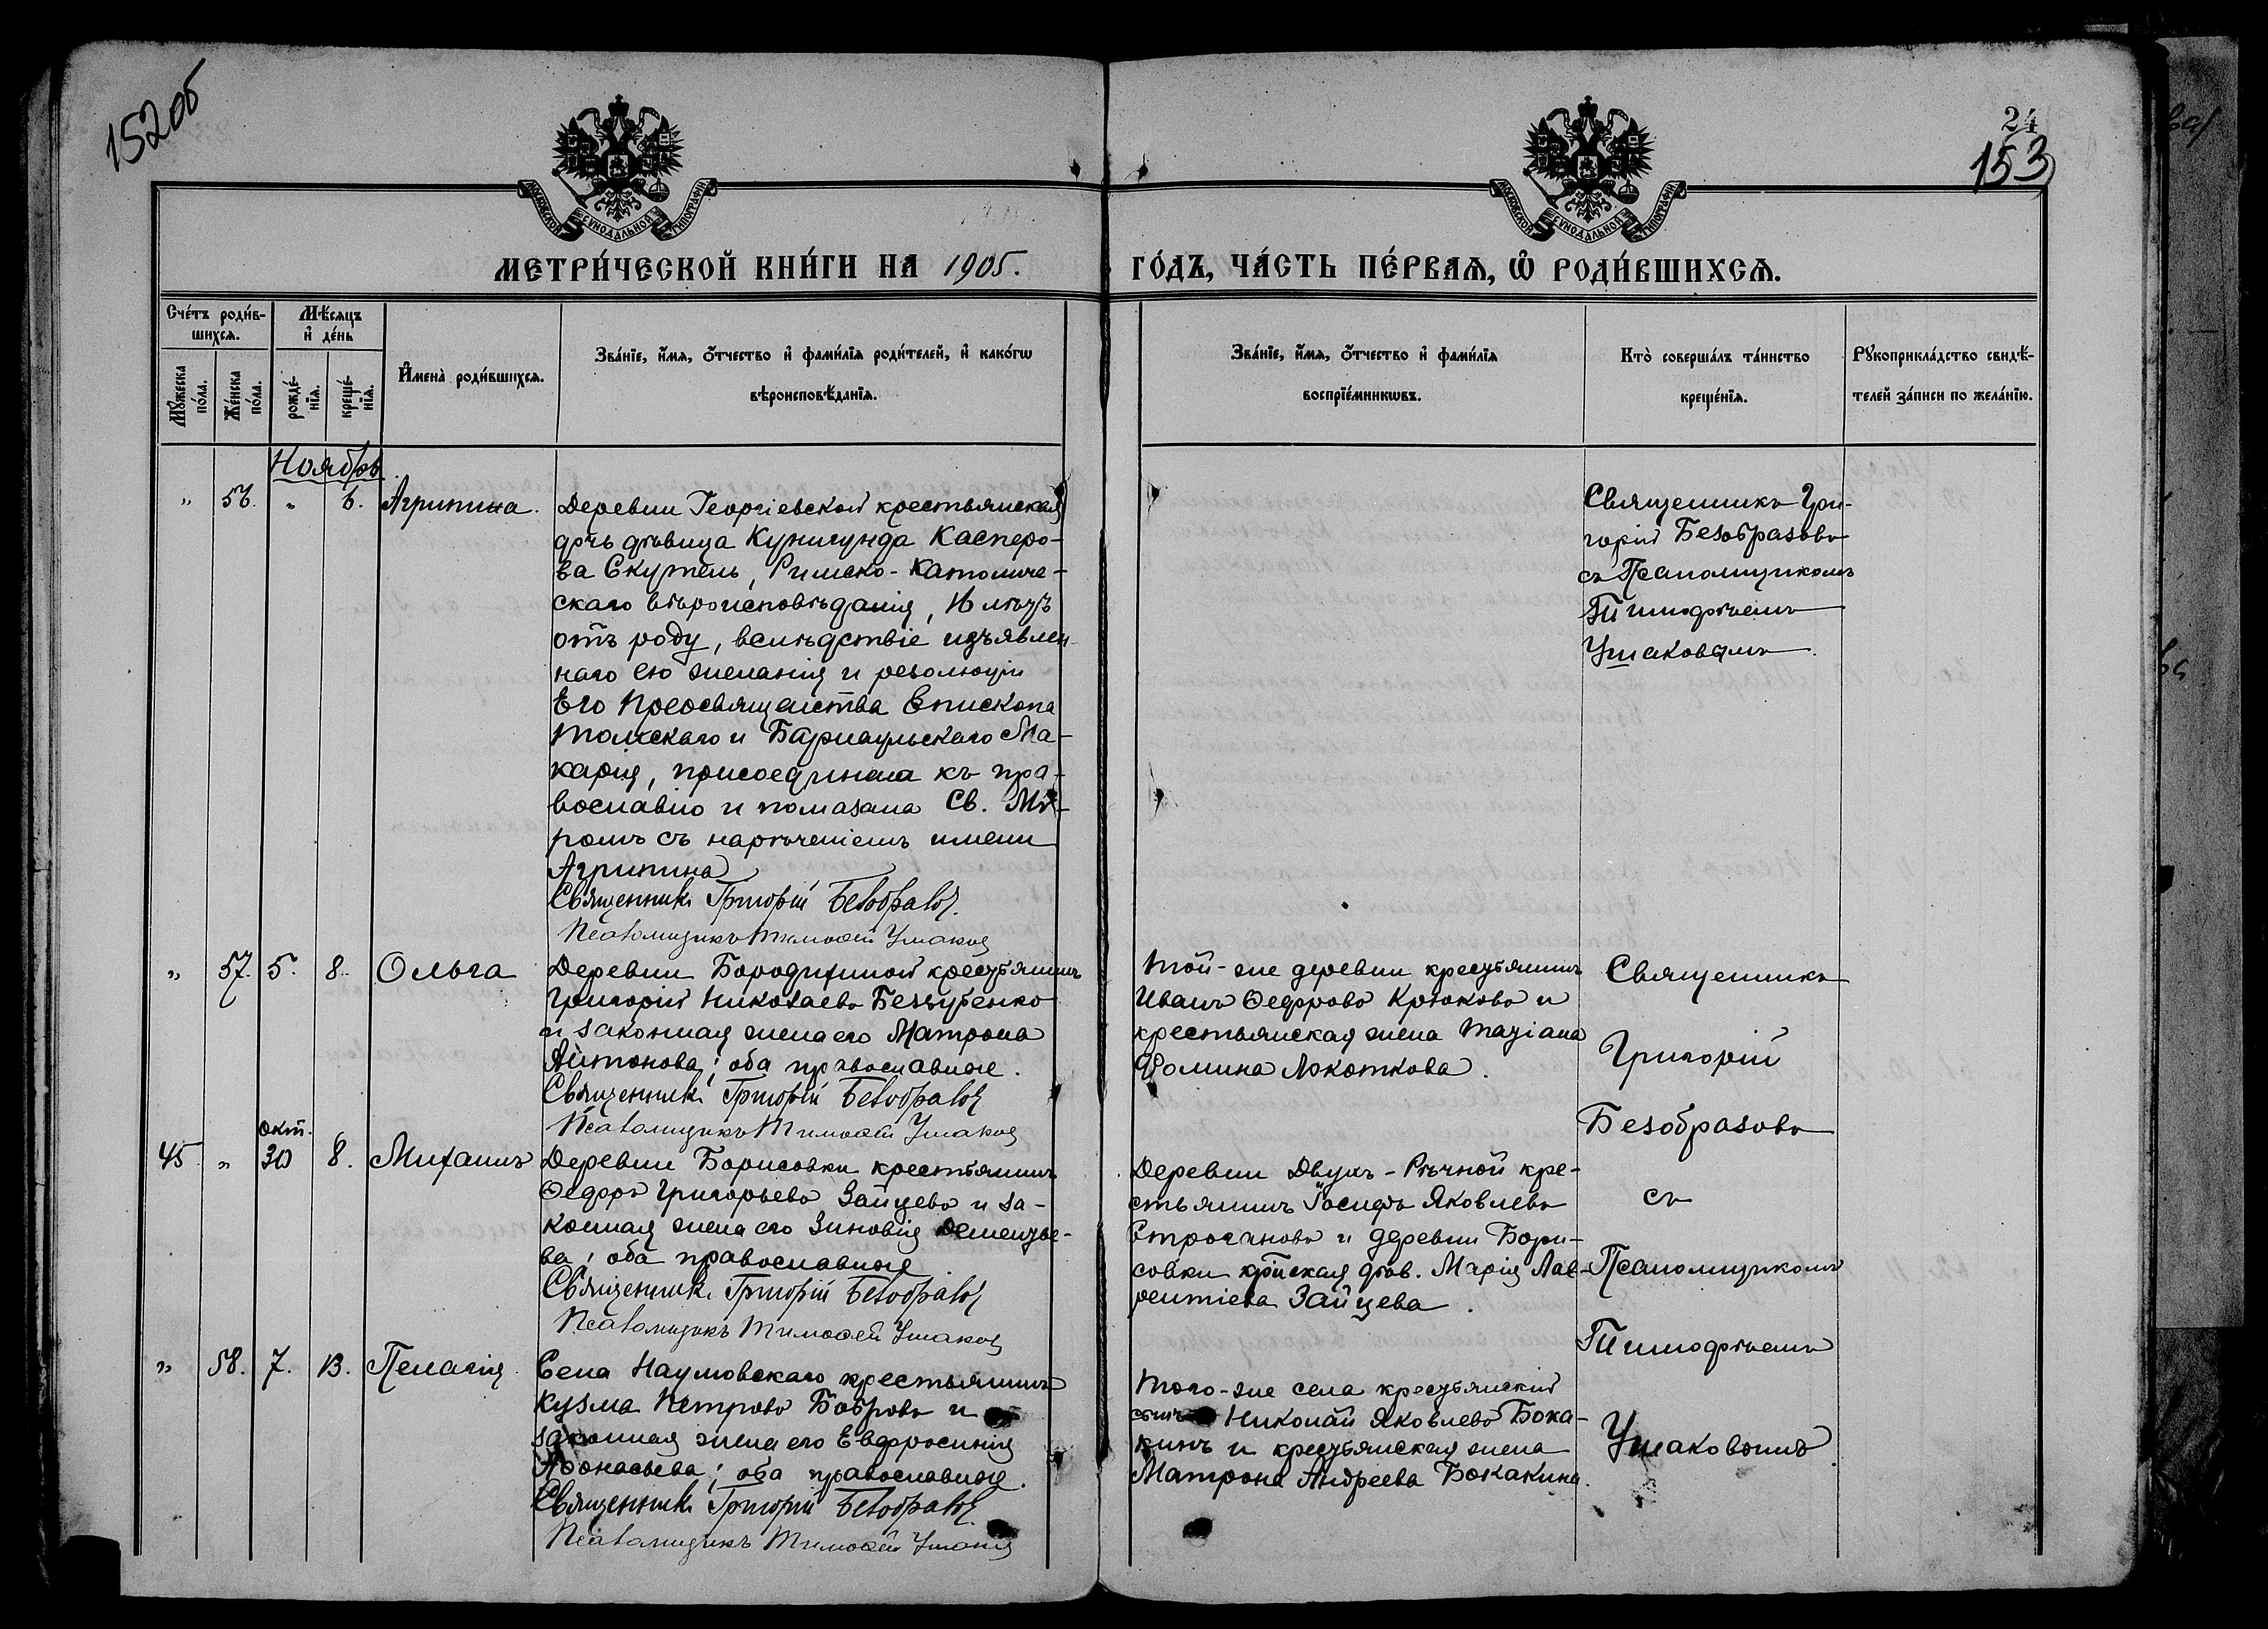 152об
24
153
МОСКОВСКОЙ СѴНОДАЛЬНОЙ ТИПОГРАФІИ
МОСКОВСКОЙ СѴНОДАЛЬНОЙ ТИПОГРАФІИ
МЕТРИ́ЧЕСКОЙ КНИ́ГИ НА 1905. ГО́ДЪ, ЧА́СТЬ ПЕ́РВАѦ, Ѽ РОДИ́ВШИХСѦ.
Сче́тъ роди́в-
шихсѧ.
Мꙋ́жеска по́ла.
Же́нска по́ла.
Мѣ́сѧцъ
и҆ де́нь
рожде́-
нїѧ.
креще́-
нїѧ.
И҆мена̀ роди́вшихсѧ.
Зва́нїе, и҆́мѧ, ѻ҆́тчество и҆ фами́лїѧ роди́телей, и҆ како́гѡ
вѣроисповѣ́данїѧ.
Зва́нїе, и҆́мѧ, ѻ҆́тчество и҆ фами́лїѧ
воспрїе́мникѡвъ.
Кто̀ соверша́лъ та́инство
креще́нїѧ.
Рꙋкоприкла́дство свидѣ́-
телей за́писи по жела́нїю.
Ноябрь
„ 56. „ 6. Агрипина.
Деревни Георгіевской крестьянская
дочь дѣвица Кунигунда Касперо-
ва Скутель, Римско-Католиче-
скаго вѣроисповѣданія, 16 лѣтъ
отъ роду, вслѣдствіе изъявлен-
наго ею желанія и резолюціи
Его Преосвященства Епископа
Томскаго и Барнаульскаго Ма-
карія, присоединена къ пра-
вославію и помазана Св. Мѵ-
ромъ съ нареченіемъ имени
Агрипина
Священникъ Григорій Безобразов
Псаломщикъ Тимоѳей Ушаков
Священникъ Гри-
горій Безобразовъ
съ Псаломщикомъ
Тимофѣемъ
Ушаковымъ.
„ 57. 5. 8. Ольга
Деревни Бородиной крестьянинъ
Григорій Николаевъ Беззубенко
и законная жена его Матрона
Антонова; оба православные.
Священникъ Григорій Безобразов
Псаломщикъ Тимоѳей Ушаков
Той-же деревни крестьянинъ
Иванъ Ѳедоровъ Крюковъ и
крестьянская жена Татіана
Фомина Локоткова.
Священникъ
Григорій
Безобразовъ
съ
Псаломщикомъ
Тимофѣемъ
Ушаковымъ
Окт.
45 „ 30 8. Михаилъ
Деревни Борисовки крестьянинъ
Ѳедоръ Григорьевъ Зайцевъ и за-
конная жена его Зиновія Дементье-
ва; оба православные
Священникъ Григорій Безобразов
Псаломщикъ Тимоѳей Ушаков
Деревни Двухъ-Рѣчной кре-
стьянинъ Іосифъ Яковлевъ
Строгановъ и деревни Бори-
совки кр̃нская дѣв. Марія Лав-
рентіева Зайцева.
„ 58. 7. 13. Пелагія
Села Наумовскаго крестьянинъ
Кузма Петровъ Бобровъ и
законная жена его Евфросинія
Аѳонасьева; оба православные.
Священникъ Григорій Безобразов
Псаломщикъ Тимоѳей Ушаков
Того-же села крестьянскій
сынъ Николай Яковлевъ Бока-
кинъ и крестьянская жена
Матрона Андреева Бокакина.